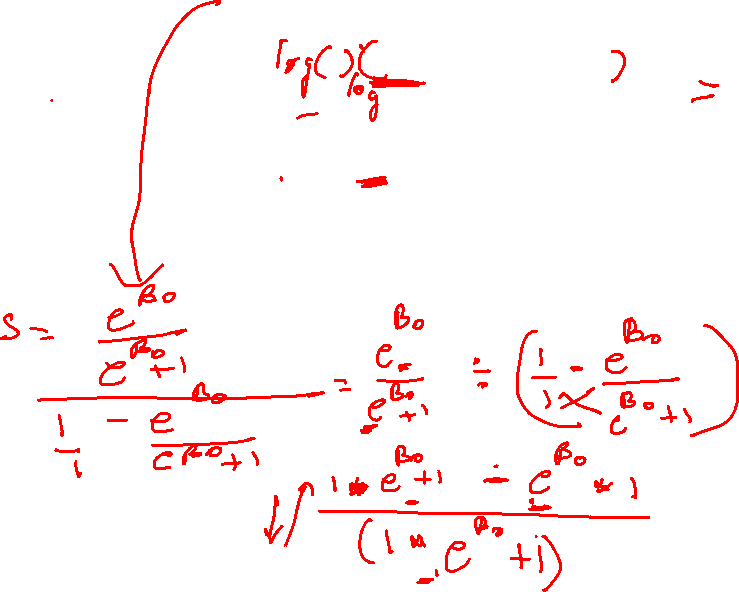 log( )(log )
=
S = \frac{\frac{e^{B_0}}{e^{B_0}+1}}{\frac{1}{1} - \frac{e^{B_0}}{e^{B_0}+1}} = \frac{e^{B_0}}{e^{B_0}+1} ÷ \left(\frac{1}{1} - \frac{e^{B_0}}{e^{B_0}+1}\right)
\frac{1 * e^{B_0}+1 - e^{B_0} * 1}{(1 * e^{B_0}+1)}